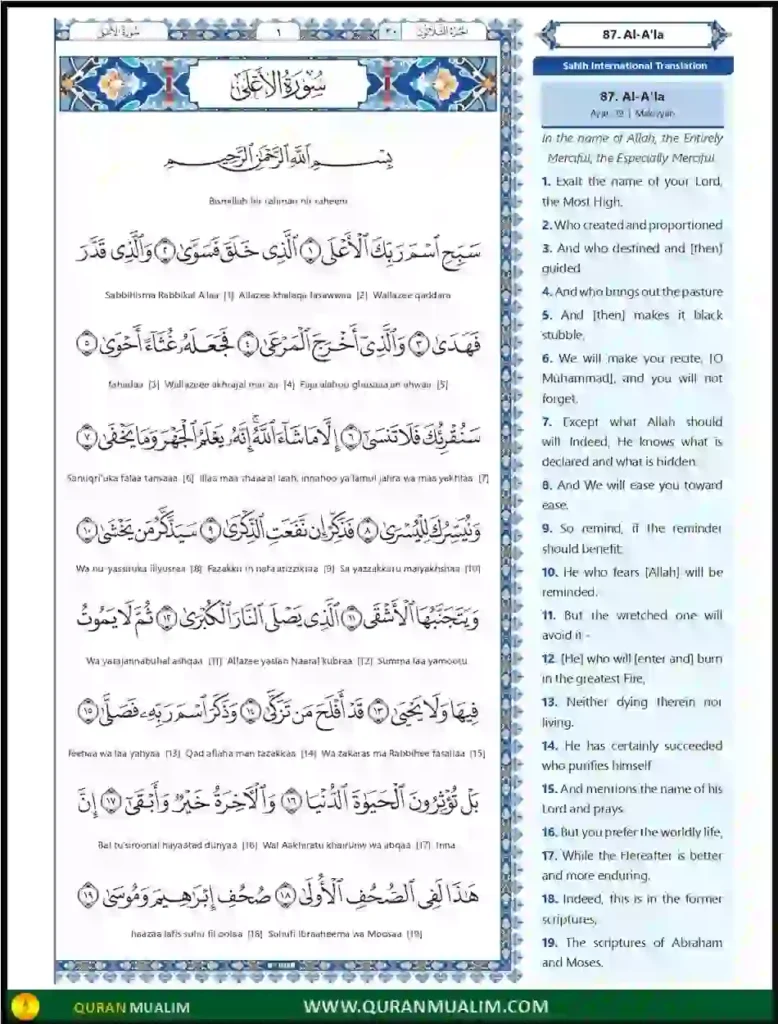 سورة الأعلى
١
٣٠
الجزء الثلاثون
سُورَةُ الأَعْلَىٰ
بِسْمِ اللَّهِ الرَّحْمَٰنِ الرَّحِيمِ
Bismillah hir rahman nir raheem
سَبِّحِ اسْمَ رَبِّكَ الْأَعْلَى ١ الَّذِي خَلَقَ فَسَوَّىٰ ٢ وَالَّذِي قَدَّرَ
Sabbihisma Rabbikal A'laa [1] Allazee khalaqa fasawwaa [2] Wallazee qaddara
فَهَدَىٰ ٣ وَالَّذِي أَخْرَجَ الْمَرْعَىٰ ٤ فَجَعَلَهُ غُثَاءً أَحْوَىٰ ٥
fahadaa [3] Wallazeee akhrajal mar'aa [4] Faja'alahoo ghusaaa'an ahwaa [5]
سَنُقْرِئُكَ فَلَا تَنسَىٰ ٦ إِلَّا مَا شَاءَ اللَّهُ ۚ إِنَّهُ يَعْلَمُ الْجَهْرَ وَمَا يَخْفَىٰ ٧
Sanuqri'uka falaa tansaaa [6] Illaa maa shaaa'al laah; innahoo ya'lamul jahra wa maa yakhfaa [7]
وَنُيَسِّرُكَ لِلْيُسْرَىٰ ٨ فَذَكِّرْ إِن نَّفَعَتِ الذِّكْرَىٰ ٩ سَيَذَّكَّرُ مَن يَخْشَىٰ ١٠
Wa nu-yassiruka lilyusraa [8] Fazakkir in nafa'atizzikraa [9] Sa yazzakkaru maiyakhshaa [10]
وَيَتَجَنَّبُهَا الْأَشْقَى ١١ الَّذِي يَصْلَى النَّارَ الْكُبْرَىٰ ١٢ ثُمَّ لَا يَمُوتُ
Wa yatajannabuhal ashqaa [11] Allazee yaslan Naaral kubraa [12] Summa laa yamootu
فِيهَا وَلَا يَحْيَىٰ ١٣ قَدْ أَفْلَحَ مَن تَزَكَّىٰ ١٤ وَذَكَرَ اسْمَ رَبِّهِ فَصَلَّىٰ ١٥
feehaa wa laa yahyaa [13] Qad aflaha man tazakkaa [14] Wa zakaras ma Rabbihee fasallaa [15]
بَلْ تُؤْثِرُونَ الْحَيَوٰةَ الدُّنْيَا ١٦ وَالْآخِرَةُ خَيْرٌ وَأَبْقَىٰ ١٧ إِنَّ
Bal tu'siroonal hayaatad dunyaa [16] Wal Aakhiratu khairunw wa abqaa [17] Inna
هَٰذَا لَفِي الصُّحُفِ الْأُولَىٰ ١٨ صُحُفِ إِبْرَاهِيمَ وَمُوسَىٰ ١٩
haazaa lafis suhu fil oolaa [18] Suhufi Ibraaheema wa Moosaa [19]
87. Al-A'la
Sahih International Translation
87. Al-A'la
Ayat 19 | Makkiyah
In the name of Allah, the Entirely
Merciful, the Especially Merciful.
1. Exalt the name of your Lord,
the Most High,
2. Who created and proportioned
3. And who destined and [then]
guided
4. And who brings out the pasture
5. And [then] makes it black
stubble.
6. We will make you recite, [O
Muhammad], and you will not
forget,
7. Except what Allah should
will. Indeed, He knows what is
declared and what is hidden.
8. And We will ease you toward
ease.
9. So remind, if the reminder
should benefit;
10. He who fears [Allah] will be
reminded.
11. But the wretched one will
avoid it -
12. [He] who will [enter and] burn
in the greatest Fire,
13. Neither dying therein nor
living.
14. He has certainly succeeded
who purifies himself
15. And mentions the name of his
Lord and prays.
16. But you prefer the worldly life,
17. While the Hereafter is better
and more enduring.
18. Indeed, this is in the former
scriptures,
19. The scriptures of Abraham
and Moses.
QURAN MUALIM
WWW.QURANMUALIM.COM